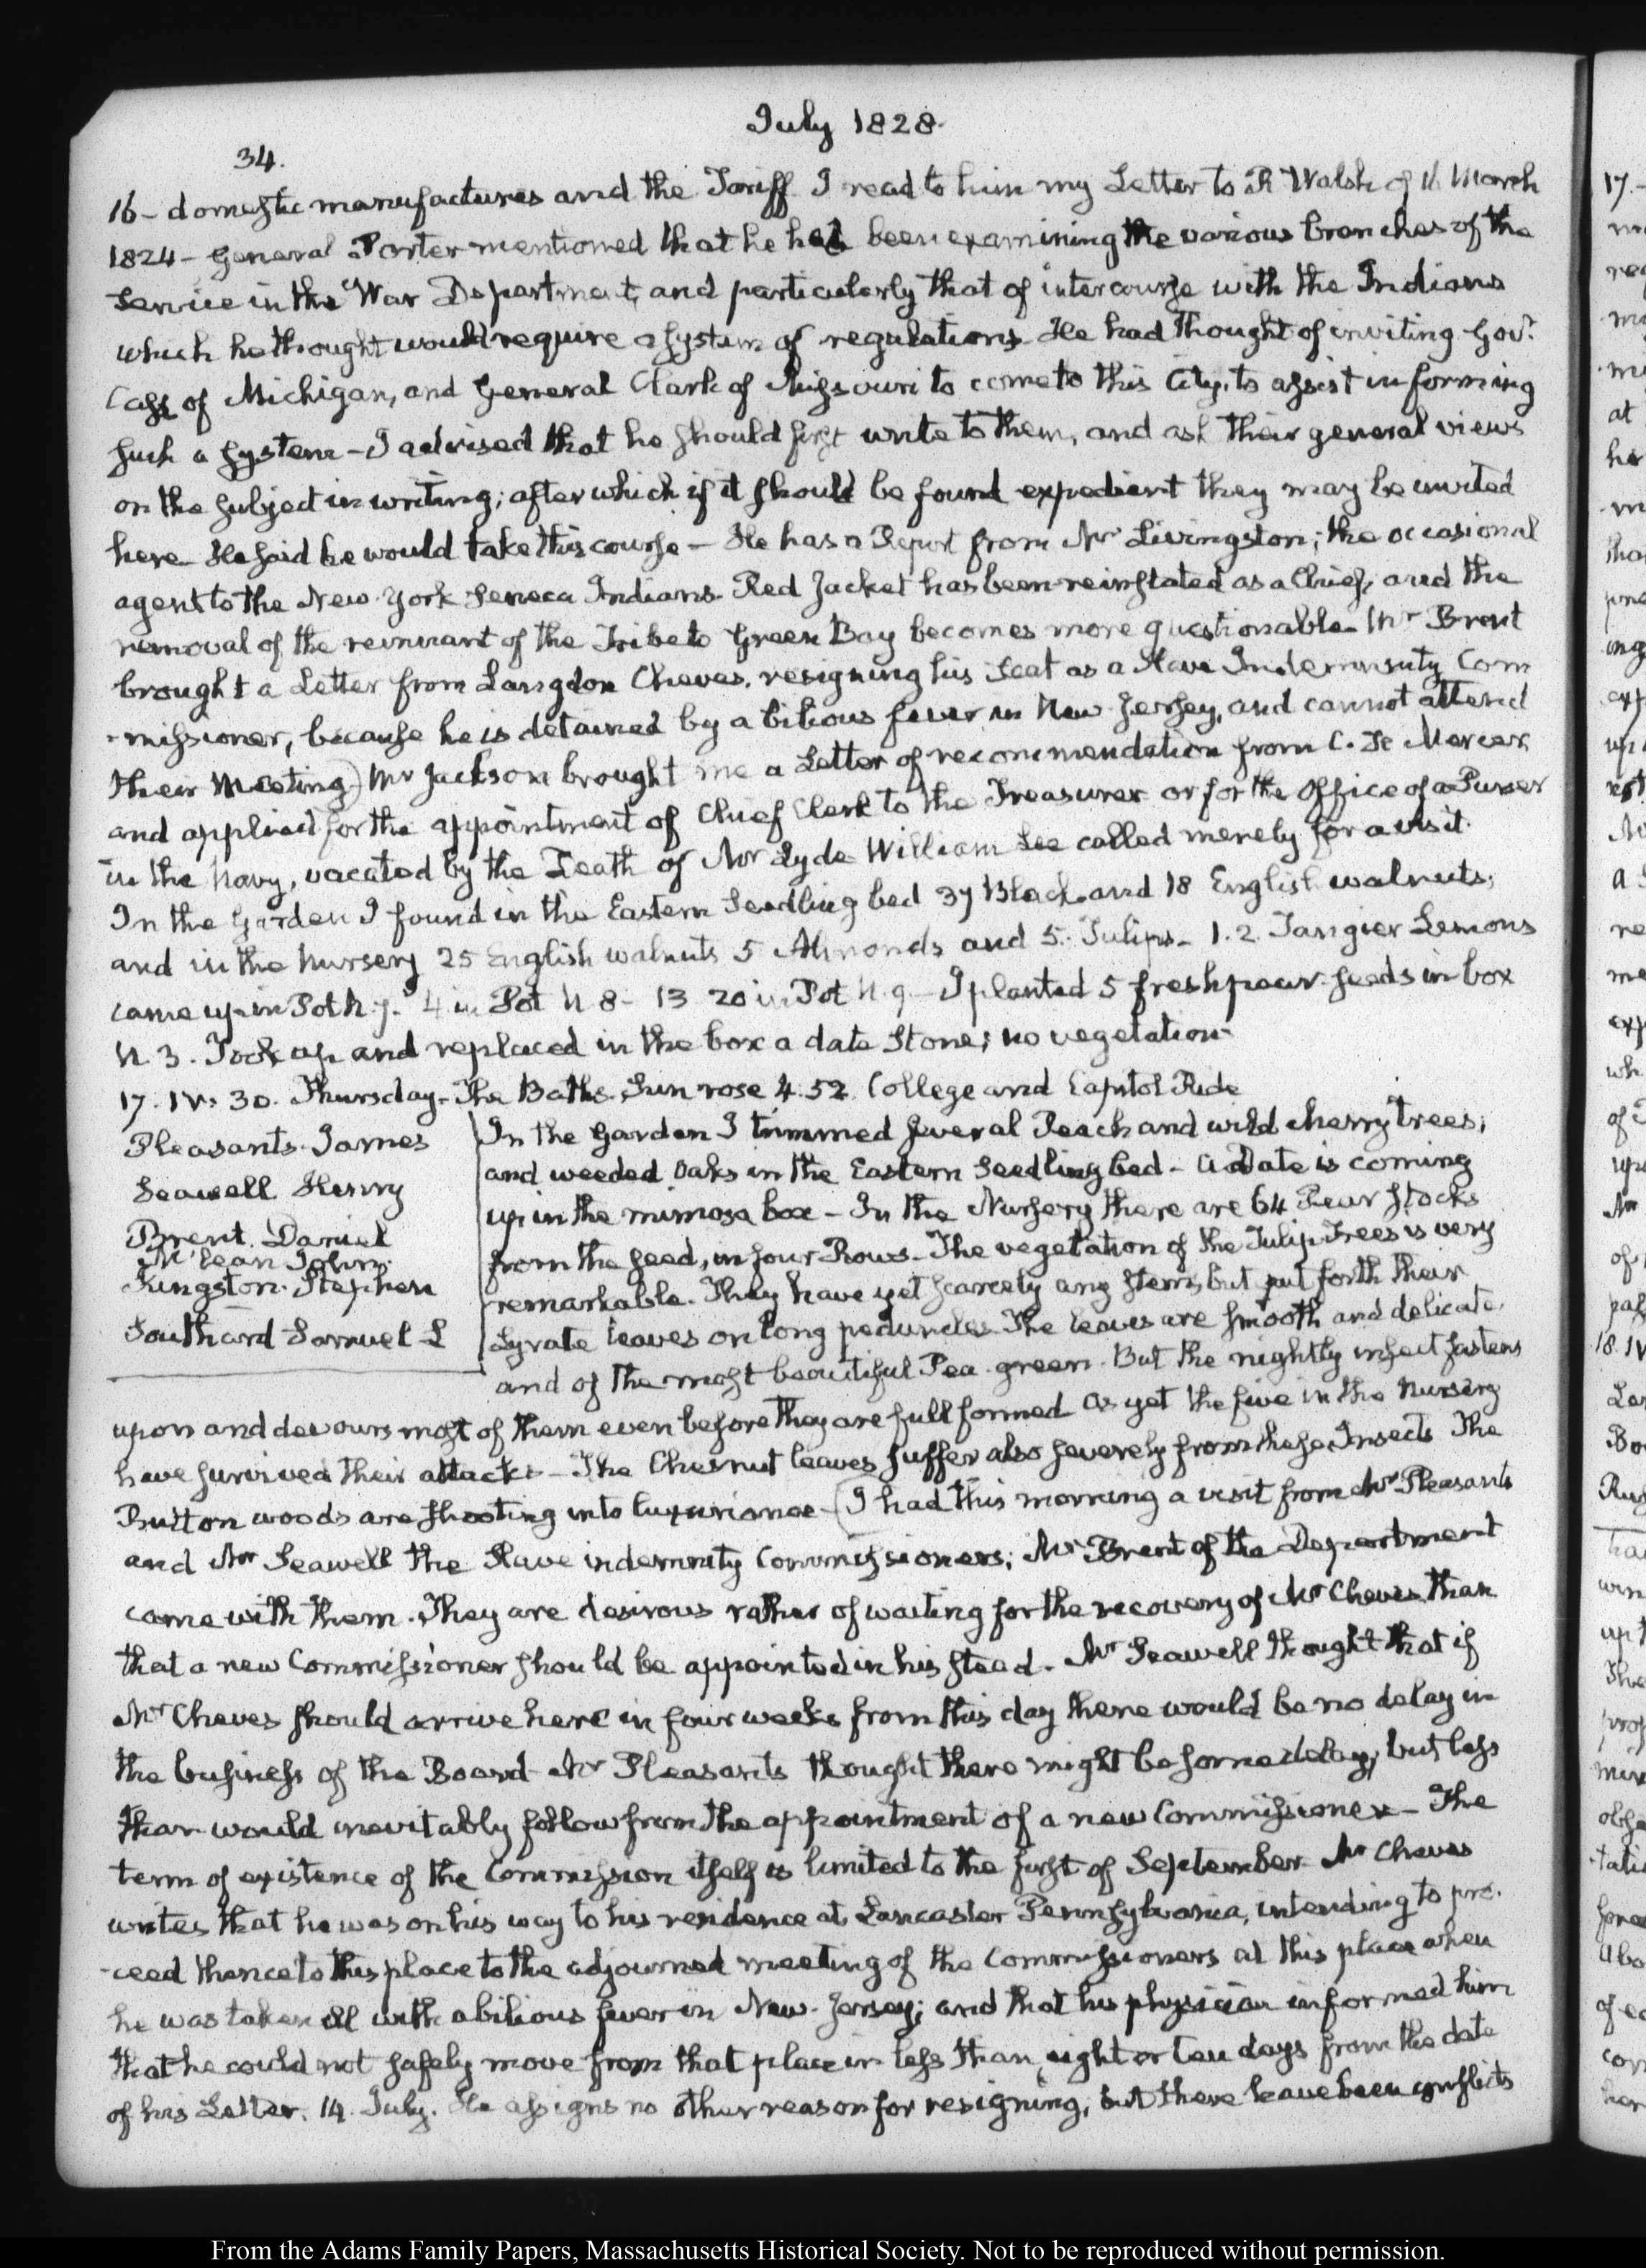 July 1828.
34.
16 - domestic manufactures and the Tariff I read to him my Letter to R Walsh of 16 March
1824 - General Porter mentioned that he had been examining the various branches of the
service in the War Department, and particularly that of intercourse with the Indians
which he thought would require a system of regulations. He had thought of inviting Govr.
Cass of Michigan, and General Clark of Missouri to come to this City, to assist in forming
such a system - I advised that he should first write to them, and ask their general views
on the subject in writing; after which if it should be found expedient they may be invited
here. He said he would take this course - He has a Report from Mr Livingston; the occasional
agent to the New York Seneca Indians. Red Jacket has been reinstated as a Chief; and the
removal of the remnant of the Tribe to Green Bay becomes more questionable. Mr Brent
brought a Letter from Langdon Cheves, resigning his Seat as a Slave Indemnity Com
-missioner, because he is detained by a bilious fever in New Jersey, and cannot attend
their Meeting) Mr Jackson brought me a Letter of recommendation from C. F. Mercer,
and applied for the appointment of Chief Clerk to the Treasurer or for the Office of a Purser
in the Navy, vacated by the Death of Mr Lyde. William Lee called merely for a visit.
In the Garden I found in the Eastern Seedling bed 37 Black and 18 English walnuts;
and in the Nursery 25 English walnuts 5 Almonds and 5. Tulips - 1. 2. Tangier Lemons
came up in Pot N. 7. 4 in Pot N 8 - 13 20 in Pot N. 9 - I planted 5 fresh pear seeds in box
N. 3. Took up and replaced in the box a date Stone; no vegetation
17. IV. 30. Thursday - The Baths. Sun rose 4.52. College and Capitol Ride
Pleasants. James
Seawell Henry
Brent. Daniel
McLean John.
Kingston. Stephen
Southard Samuel L
In the Garden I trimmed several Peach and wild cherry trees;
and weeded Oaks in the Eastern Seedling bed - A Date is coming
up in the mimosa box - In the Nursery there are 64 Pear stocks
from the seed, in four Rows - The vegetation of the Tulip Trees is very
remarkable. They have yet scarcely any stem, but put forth their
Lyrate leaves on long peduncles. The leaves are smooth and delicate,
and of the most beautiful Pea-green. But the nightly insect fastens
upon and devours most of them even before they are full formed As yet the five in the Nursery
have survived their attacks - The Chesnut leaves suffer also severely from these Insects The
Button woods are shooting into luxuriance - (I had this morning a visit from Mr Pleasants
and Mr Seawell the Slave indemnity Commissioners; Mr Brent of the Department
came with them. They are desirous rather of waiting for the recovery of Mr Cheves, than
that a new Commissioner should be appointed in his stead. Mr Seawell thought that if
Mr Cheves should arrive here in four weeks from this day there would be no delay in
the business of the Board Mr Pleasants thought there might be some delay, but less
than would inevitably follow from the appointment of a new Commissioner - The
term of existence of the Commission itself is limited to the first of September. Mr Cheves
writes that he was on his way to his residence at Lancaster Pennsylvania, intending to pro-
-ceed thence to this place to the adjourned meeting of the Commissioners at this place when
he was taken ill with a bilious fever in New-Jersey; and that his physician informed him
that he could not safely move from that place in less than eight or ten days from the date
of his Letter. 14. July. He assigns no other reason for resigning, but there have been conflicts
From the Adams Family Papers, Massachusetts Historical Society. Not to be reproduced without permission.